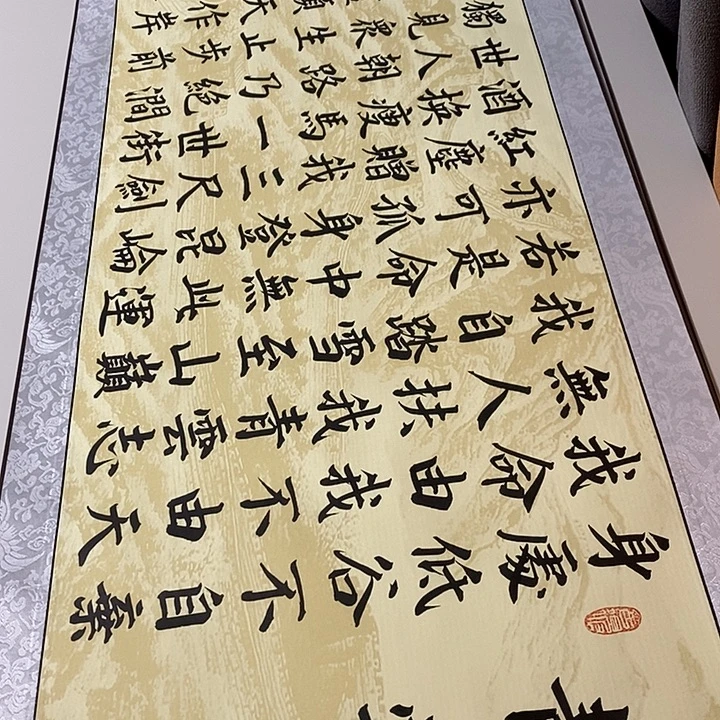 身處低谷不自棄
我命由我不由天
無人扶我青雲志
我自踏雪至山巔
若是命中無此運
亦可孤身登昆崙
紅塵贈我三尺劍
酒換瘦馬一世街
世人朝路乃絕澗
獨見眾生止步前
天作岸